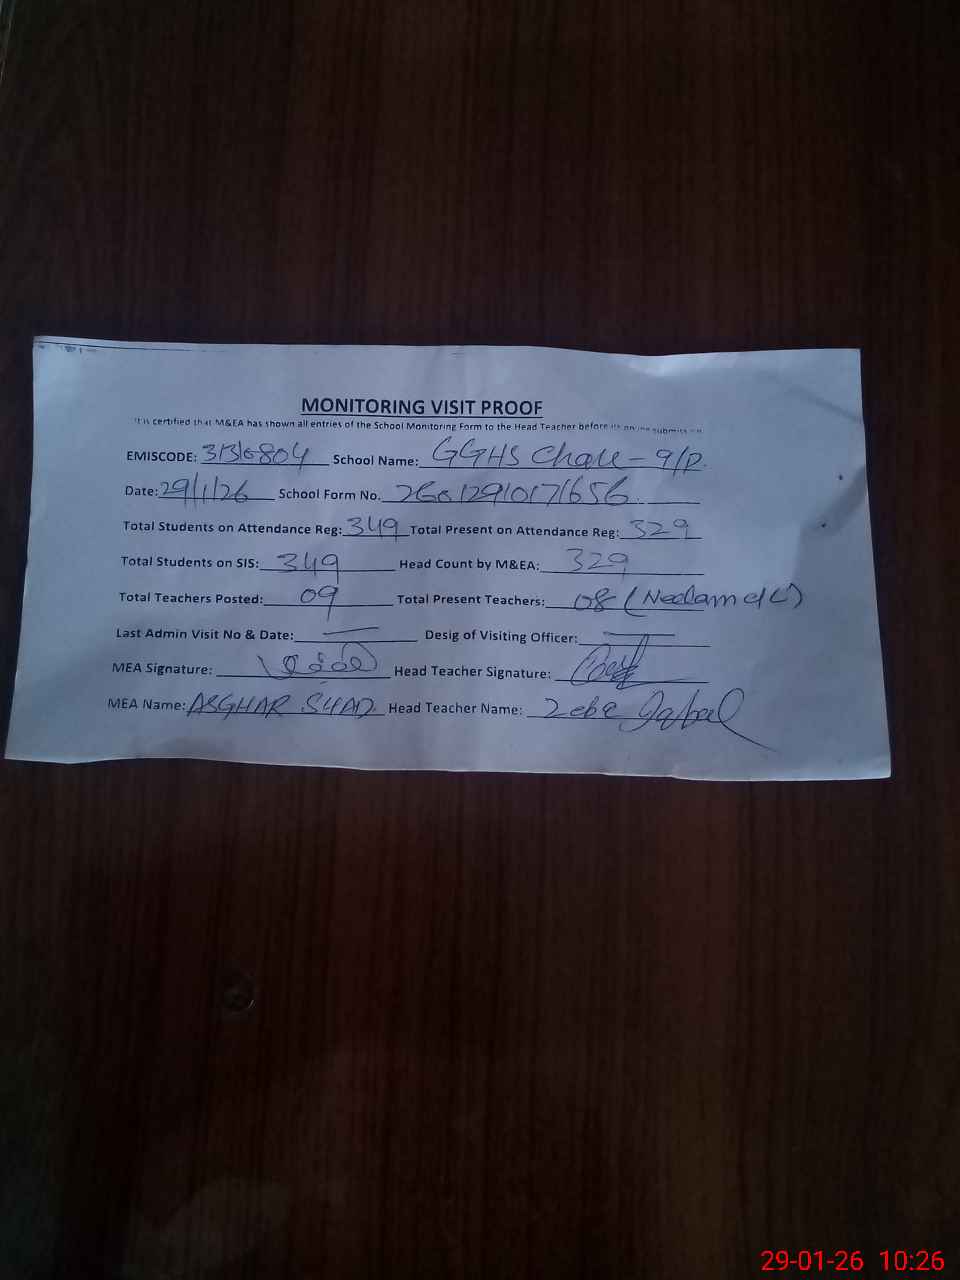 MONITORING VISIT PROOF
It is certified that M&EA has shown all entries of the School Monitoring Form to the Head Teacher before its online submission
EMISCODE: 31316804 School Name: GGHS Chak - 9/P.
Date: 29/1/26 School Form No.
Total Students on Attendance Reg: 349 Total Present on Attendance Reg: 329
Total Students on SIS: 349 Head Count by M&EA: 329
Total Teachers Posted: 09 Total Present Teachers: 08 (Neelam c/L)
Last Admin Visit No & Date: — Desig of Visiting Officer: —
MEA Signature: Head Teacher Signature:
MEA Name: ASGHAR Head Teacher Name:
29-01-26 10:26